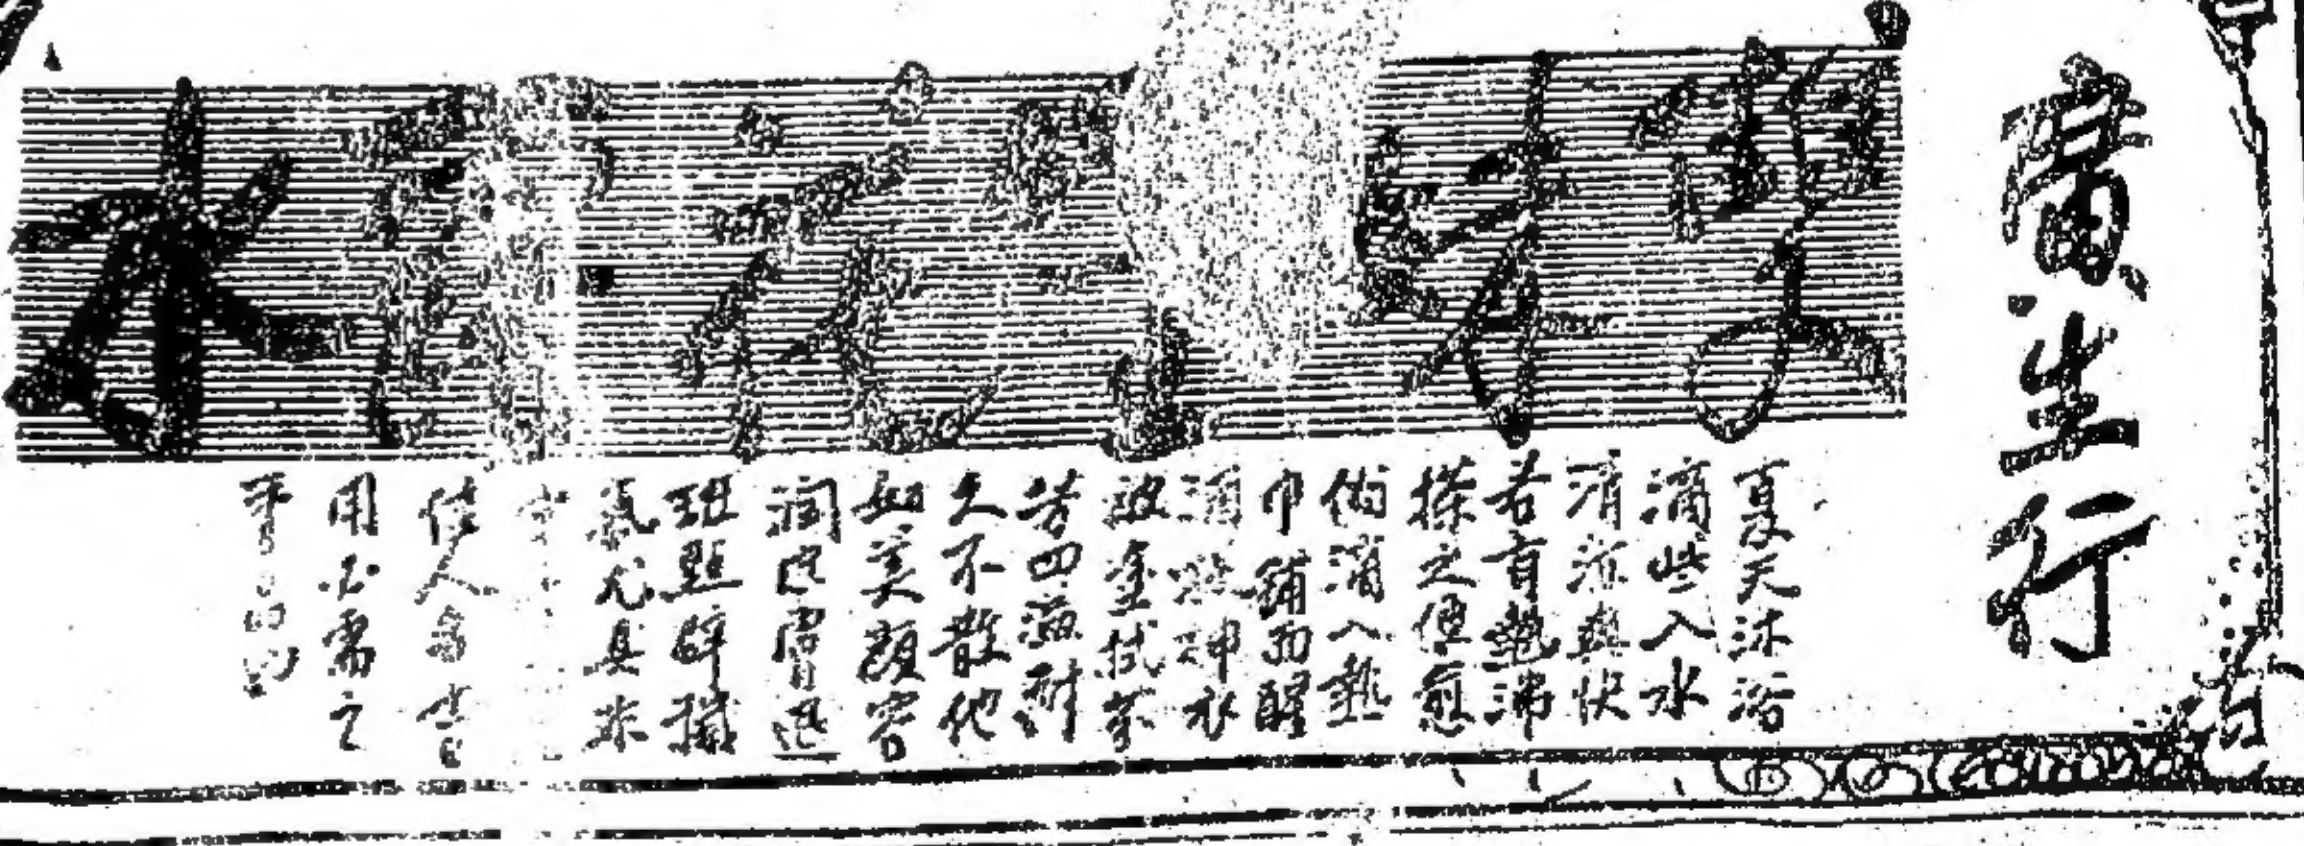 廣生行
雙妹花露水
夏天沐浴
滴些入水
清涼爽快
若有熱沸
搽之便愈
倘滴入熱
巾鋪而醒
酒神衣
被塗拭芬
芳四溢耐
久不散他
如美顏容
潤皮膚迅
班點辟穢
氣尤其
佳人
用必需之